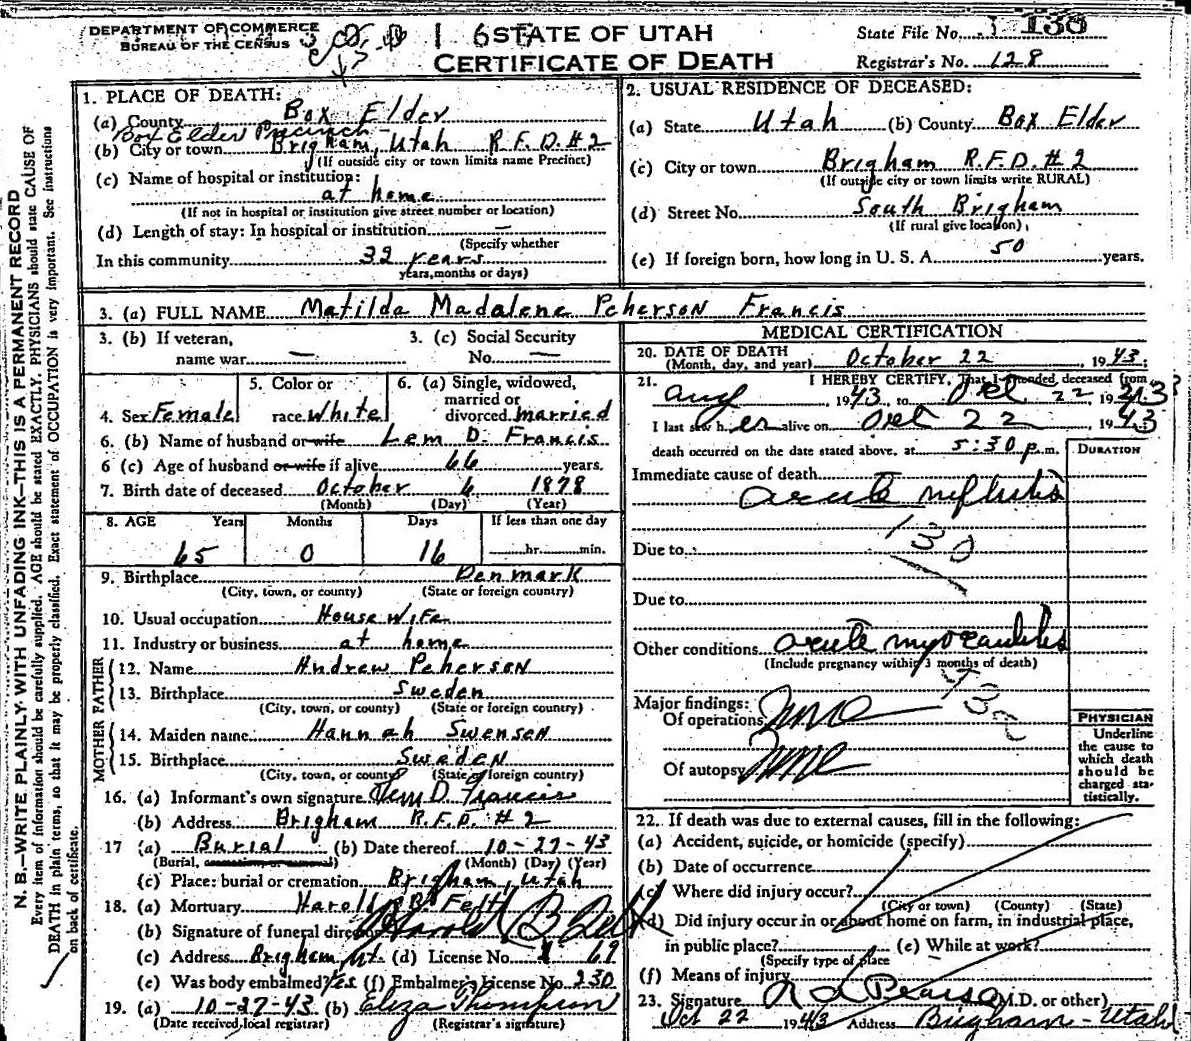 DEPARTMENT OF COMMERCE
BUREAU OF THE CENSUS
1 6 STATE OF UTAH
CERTIFICATE OF DEATH
State File No. 138
Registrar's No. 128
N. B.—WRITE PLAINLY WITH UNFADING INK—THIS IS A PERMANENT RECORD
Every item of information should be carefully supplied. AGE should be stated EXACTLY. PHYSICIANS should state CAUSE OF
DEATH in plain terms, so that it may be properly classified. Exact statement of OCCUPATION is very important. See instructions
on back of certificate.
1. PLACE OF DEATH:
(a) County Box Elder
Box Elder Precinct
(b) City or town Brigham, Utah R.F.D. #2
(If outside city or town limits name Precinct)
(c) Name of hospital or institution:
at home
(If not in hospital or institution give street number or location)
(d) Length of stay: In hospital or institution —
(Specify whether
In this community 39 years
years, months or days)
2. USUAL RESIDENCE OF DECEASED:
(a) State Utah (b) County Box Elder
(c) City or town Brigham R.F.D. #2
(If outside city or town limits write RURAL)
(d) Street No. South Brigham
(If rural give location)
(e) If foreign born, how long in U. S. A. 50 years.
3. (a) FULL NAME Matilda Madalene Peherson Francis
3. (b) If veteran,
name war —
3. (c) Social Security
No. —
4. Sex Female
5. Color or
race White
6. (a) Single, widowed,
married or
divorced married
6. (b) Name of husband or wife Lem D. Francis
6 (c) Age of husband or wife if alive 66 years.
7. Birth date of deceased October 6 1878
(Month) (Day) (Year)
8. AGE Years Months Days If less than one day
65 0 16 hr. min.
9. Birthplace Denmark
(City, town, or county) (State or foreign country)
10. Usual occupation House Wife
11. Industry or business at home
FATHER
12. Name Andrew Peherson
13. Birthplace Sweden
(City, town, or county) (State or foreign country)
MOTHER
14. Maiden name Hannah Swensen
15. Birthplace Sweden
(City, town, or county) (State or foreign country)
16. (a) Informant's own signature Lem D. Francis
(b) Address Brigham R.F.D. #2
17 (a) Burial (b) Date thereof 10-27-43
(Burial, cremation or removal) (Month) (Day) (Year)
(c) Place: burial or cremation Brigham, Utah
18. (a) Mortuary Harold B. Felt
(b) Signature of funeral director Harold B Felt
(c) Address Brigham, Ut. (d) License No. 69
(e) Was body embalmed? Yes (f) Embalmer's License No. 230
19. (a) 10-27-43 (b) Eliza Thompson
(Date received local registrar) (Registrar's signature)
MEDICAL CERTIFICATION
20. DATE OF DEATH
(Month, day, and year) October 22, 1943.
21. I HEREBY CERTIFY, That I attended deceased from
Aug, 1943, to Oct 22, 1943
I last saw her alive on Oct 22 1943
death occurred on the date stated above, at 5:30 p.m.
DURATION
Immediate cause of death
acute nephritis
130
Due to
Due to
Other conditions acute myocarditis
(Include pregnancy within 3 months of death)
Major findings:
Of operations none
Of autopsy none
PHYSICIAN
Underline
the cause to
which death
should be
charged sta-
tistically.
22. If death was due to external causes, fill in the following:
(a) Accident, suicide, or homicide (specify)
(b) Date of occurrence
(c) Where did injury occur?
(City or town) (County) (State)
(d) Did injury occur in or about home on farm, in industrial place,
in public place? (e) While at work?
(Specify type of place
(f) Means of injury
23. Signature (M.D. or other)
Oct 22 1943 Address Brigham - Utah